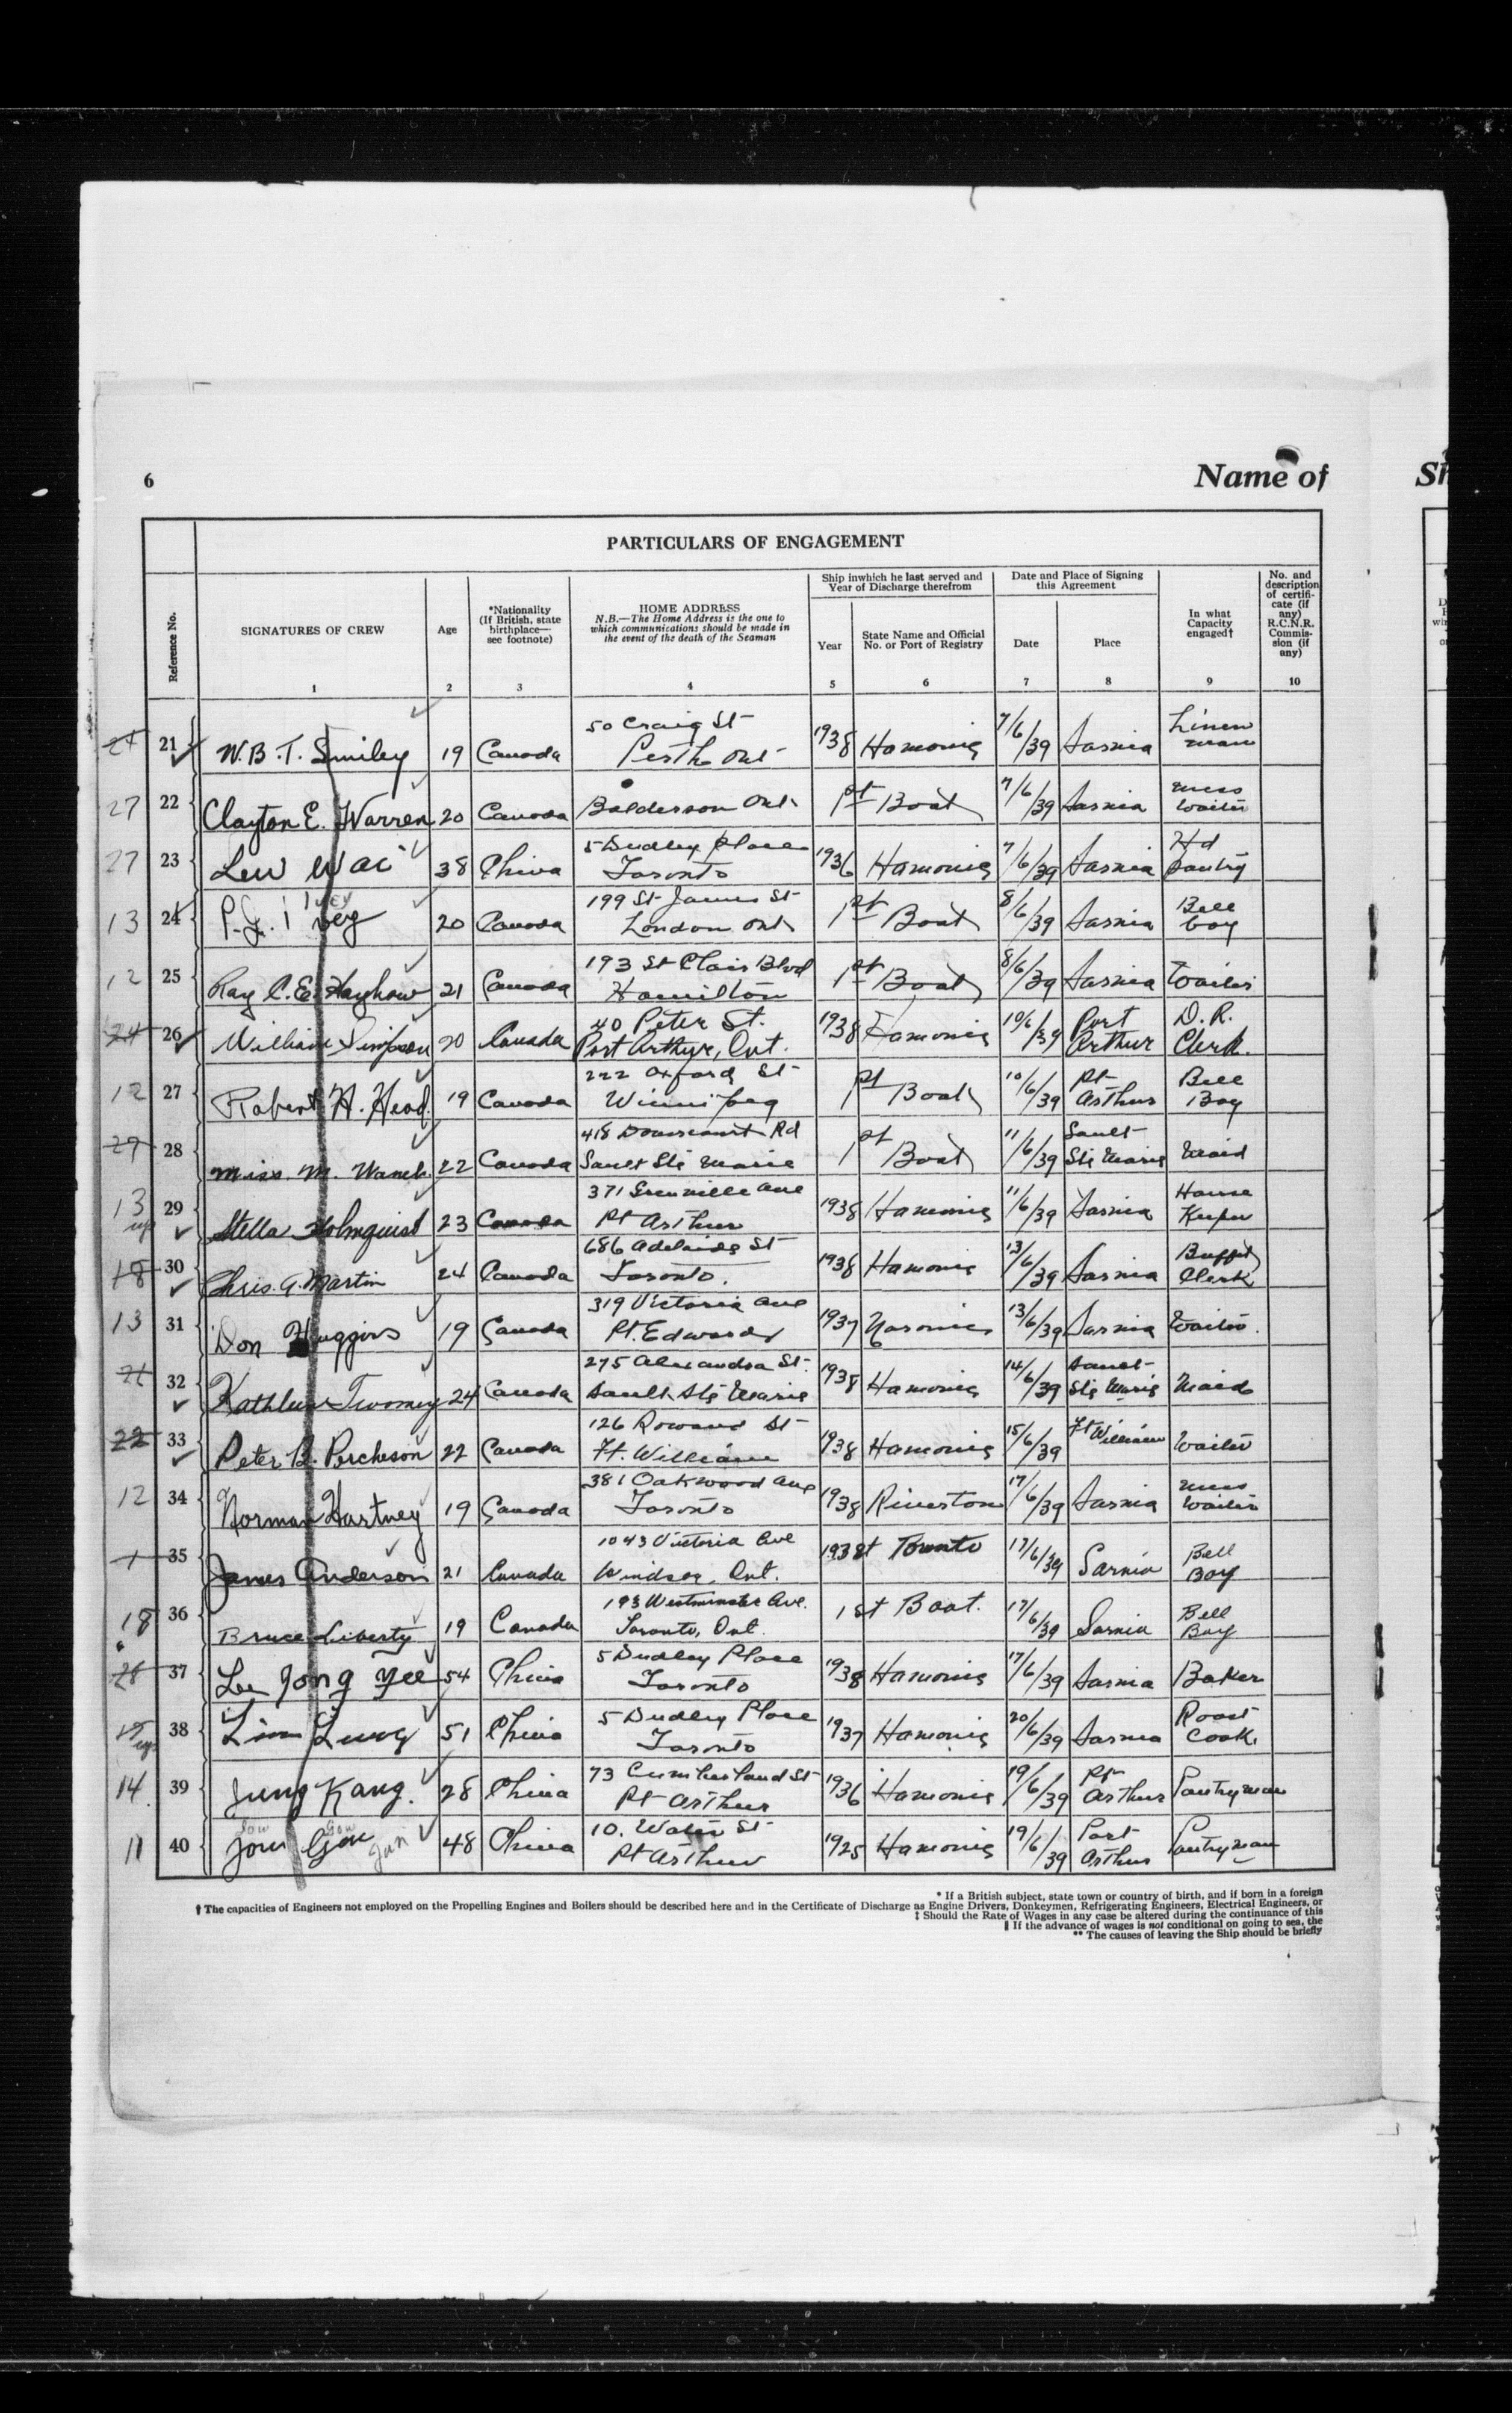 6
Name of
Sh
PARTICULARS OF ENGAGEMENT
Reference No.
SIGNATURES OF CREW
1
Age
2
*Nationality
(If British, state
birthplace—
see footnote)
3
HOME ADDRESS
N.B.—The Home Address is the one to
which communications should be made in
the event of the death of the Seaman
4
Ship in which he last served and
Year of Discharge therefrom
Year
5
State Name and Official
No. or Port of Registry
6
Date and Place of Signing
this Agreement
Date
7
Place
8
In what
Capacity
engaged†
9
No. and
description
of certifi-
cate (if
any)
R.C.N.R.
Commis-
sion (if
any)
10
21 W.B.T. Smiley 19 Canada 50 Craig St Perth Ont 1938 Hamonic 7/6/39 Sarnia Linen man
27 22 Clayton E. Warren 20 Canada Balderson Ont 1st Boat 7/6/39 Sarnia Mess Waiter
27 23 Lew Wai 38 China 5 Dudley Place Toronto 1936 Hamonic 7/6/39 Sarnia Hd Pantry
13 24 P.J. Ivey 20 Canada 199 St James St London Ont 1st Boat 8/6/39 Sarnia Bell boy
12 25 Ray C.E. Hayhow 21 Canada 193 St Clair Blvd Hamilton 1st Boat 8/6/39 Sarnia Waiter
24 26 William Simpson 20 Canada 40 Peter St. Port Arthur, Ont. 1938 Hamonic 10/6/39 Port Arthur D.R. Clerk.
12 27 Robert H. Head. 19 Canada 222 Oxford St Winnipeg 1st Boat 10/6/39 Pt Arthur Bell Boy
28 Miss. M. 22 Canada 418 Rd Sault Ste Marie 1st Boat 11/6/39 Sault Ste Marie Maid
13 29 Stella Holmquist 23 Canada 371 Grenville Ave Pt Arthur 1938 Hamonic 11/6/39 Sarnia House Keeper
18 30 Chris. A. Martin 24 Canada 686 Adelaide St Toronto. 1938 Hamonic 13/6/39 Sarnia Buffet Clerk
13 31 Don Huggins 19 Canada 319 Victoria Ave Pt. Edward 1937 Noronic 13/6/39 Sarnia Waiter.
32 Kathleen Twomey 24 Canada 275 Alexandra St. Sault Ste Marie 1938 Hamonic 14/6/39 Sault Ste Marie Maid
22 33 Peter B. Percheson 22 Canada 126 Rowand St Ft. William 1938 Hamonic 15/6/39 Ft William Waiter
12 34 Norman Hartney 19 Canada 381 Oakwood Ave Toronto 1938 Riverton 17/6/39 Sarnia Mess Waiter
1 35 James Anderson 21 Canada 1043 Victoria Ave Windsor, Ont. 1938 Toronto 17/6/39 Sarnia Bell Boy
18 36 Bruce Liberty 19 Canada 193 Westminster Ave. Toronto, Ont. 1st Boat. 17/6/39 Sarnia Bell Boy
28 37 Lee Jong Yee 54 China 5 Dudley Place Toronto 1938 Hamonic 17/6/39 Sarnia Baker
38 Lim Lung 51 China 5 Dudley Place Toronto 1937 Hamonic 20/6/39 Sarnia Roast Cook
14 39 Jung Kang. 28 China 73 Cumberland St Pt Arthur 1936 Hamonic 19/6/39 Pt Arthur Pantryman
11 40 Jow Gow Jan 48 China 10. Water St Pt Arthur 1925 Hamonic 19/6/39 Port Arthur Pantryman
* If a British subject, state town or country of birth, and if born in a foreign
† The capacities of Engineers not employed on the Propelling Engines and Boilers should be described here and in the Certificate of Discharge as Engine Drivers, Donkeymen, Refrigerating Engineers, Electrical Engineers, or
‡ Should the Rate of Wages in any case be altered during the continuance of this
‖ If the advance of wages is not conditional on going to sea, the
** The causes of leaving the Ship should be briefly